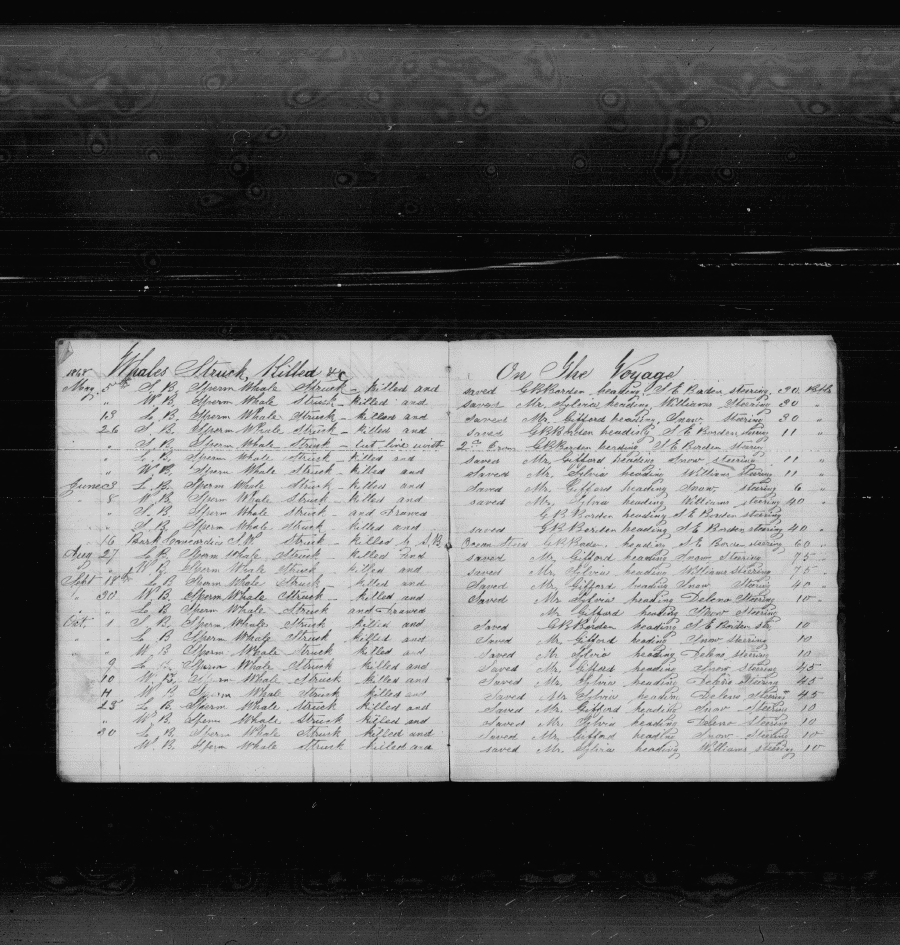 1868 Whales Struck, Killed &c On The Voyage
May 5th S. B. Sperm Whale Struck – killed and saved G B Borden heading S E Borden steering 30 Bbls
" W. B. Sperm Whale Struck – killed and saved Mr. Sylvia heading Williams Steering 30 "
13 L. B. Sperm Whale Struck – killed and saved Mr. Gifford heading Snow Steering 30
26 S. B. Sperm Whale Struck – killed and saved G B Borden heading S E Borden steering 11 "
" S. B. Sperm Whale Struck – cut line with 2 G B Borden heading S E Borden steering
" L. B. Sperm Whale Struck – killed and saved Mr. Gifford heading Snow steering 11 "
" W. B. Sperm Whale Struck – killed and saved Mr. Sylvia heading Williams steering 11 "
June 3 L. B. Sperm Whale Struck – killed and Saved Mr. Gifford heading Snow steering 6 "
" 8 W. B. Sperm Whale Struck – killed and saved Mr. Sylvia heading Williams steering 40 "
" S. B. Sperm Whale Struck and Drawed G. B. Borden heading S E Borden steering
" S. B. Sperm Whale Struck killed and saved G. B. Borden heading S. E. Borden steering 40 "
" 16 Bark Concordia S. W. Struck – killed by S. B. G. B. Borden heading S. E. Borden steering 60 "
Aug 27 L. B. Sperm Whale Struck killed and saved Mr. Gifford heading Snow Steering 75 "
" " W. B. Sperm Whale Struck killed and saved Mr. Sylvia heading Williams Steering 75 "
Sept 18th L. B. Sperm Whale Struck – killed and Saved Mr. Gifford heading Snow Steering 40 "
" 30 W. B. Sperm Whale Struck – killed and Saved Mr. Sylvia heading Deleno Steering 10 "
" L. B. Sperm Whale Struck and Drawed Mr. Gifford heading Snow Steering
Oct. 1 S. B. Sperm Whale Struck killed and Saved G. B. Borden heading S. E. Borden 10
" " L. B. Sperm Whale Struck killed and Saved Mr. Gifford heading Snow steering 10
" W. B Sperm Whale Struck killed and Saved Mr. Sylvia heading Deleno steering 10
9 L. B. Sperm Whale Struck killed and Saved Mr. Gifford heading Snow steering 45
10 W. B. Sperm Whale Struck killed and Saved Mr. Sylvia heading Deleno Steering 45
11 W. B. Sperm Whale Struck killed and Saved Mr. Sylvia heading Deleno Steering 45
23 L. B. Sperm Whale Struck killed and Saved Mr. Gifford heading Snow Steering 10
" W. B. Sperm Whale Struck killed and Saved Mr. Sylvia heading Deleno Steering 10
30 L. B. Sperm Whale Struck killed and Saved Mr. Gifford heading Snow Steering 10
W. B. Sperm Whale Struck killed and saved Mr. Sylvia heading Williams steering 10